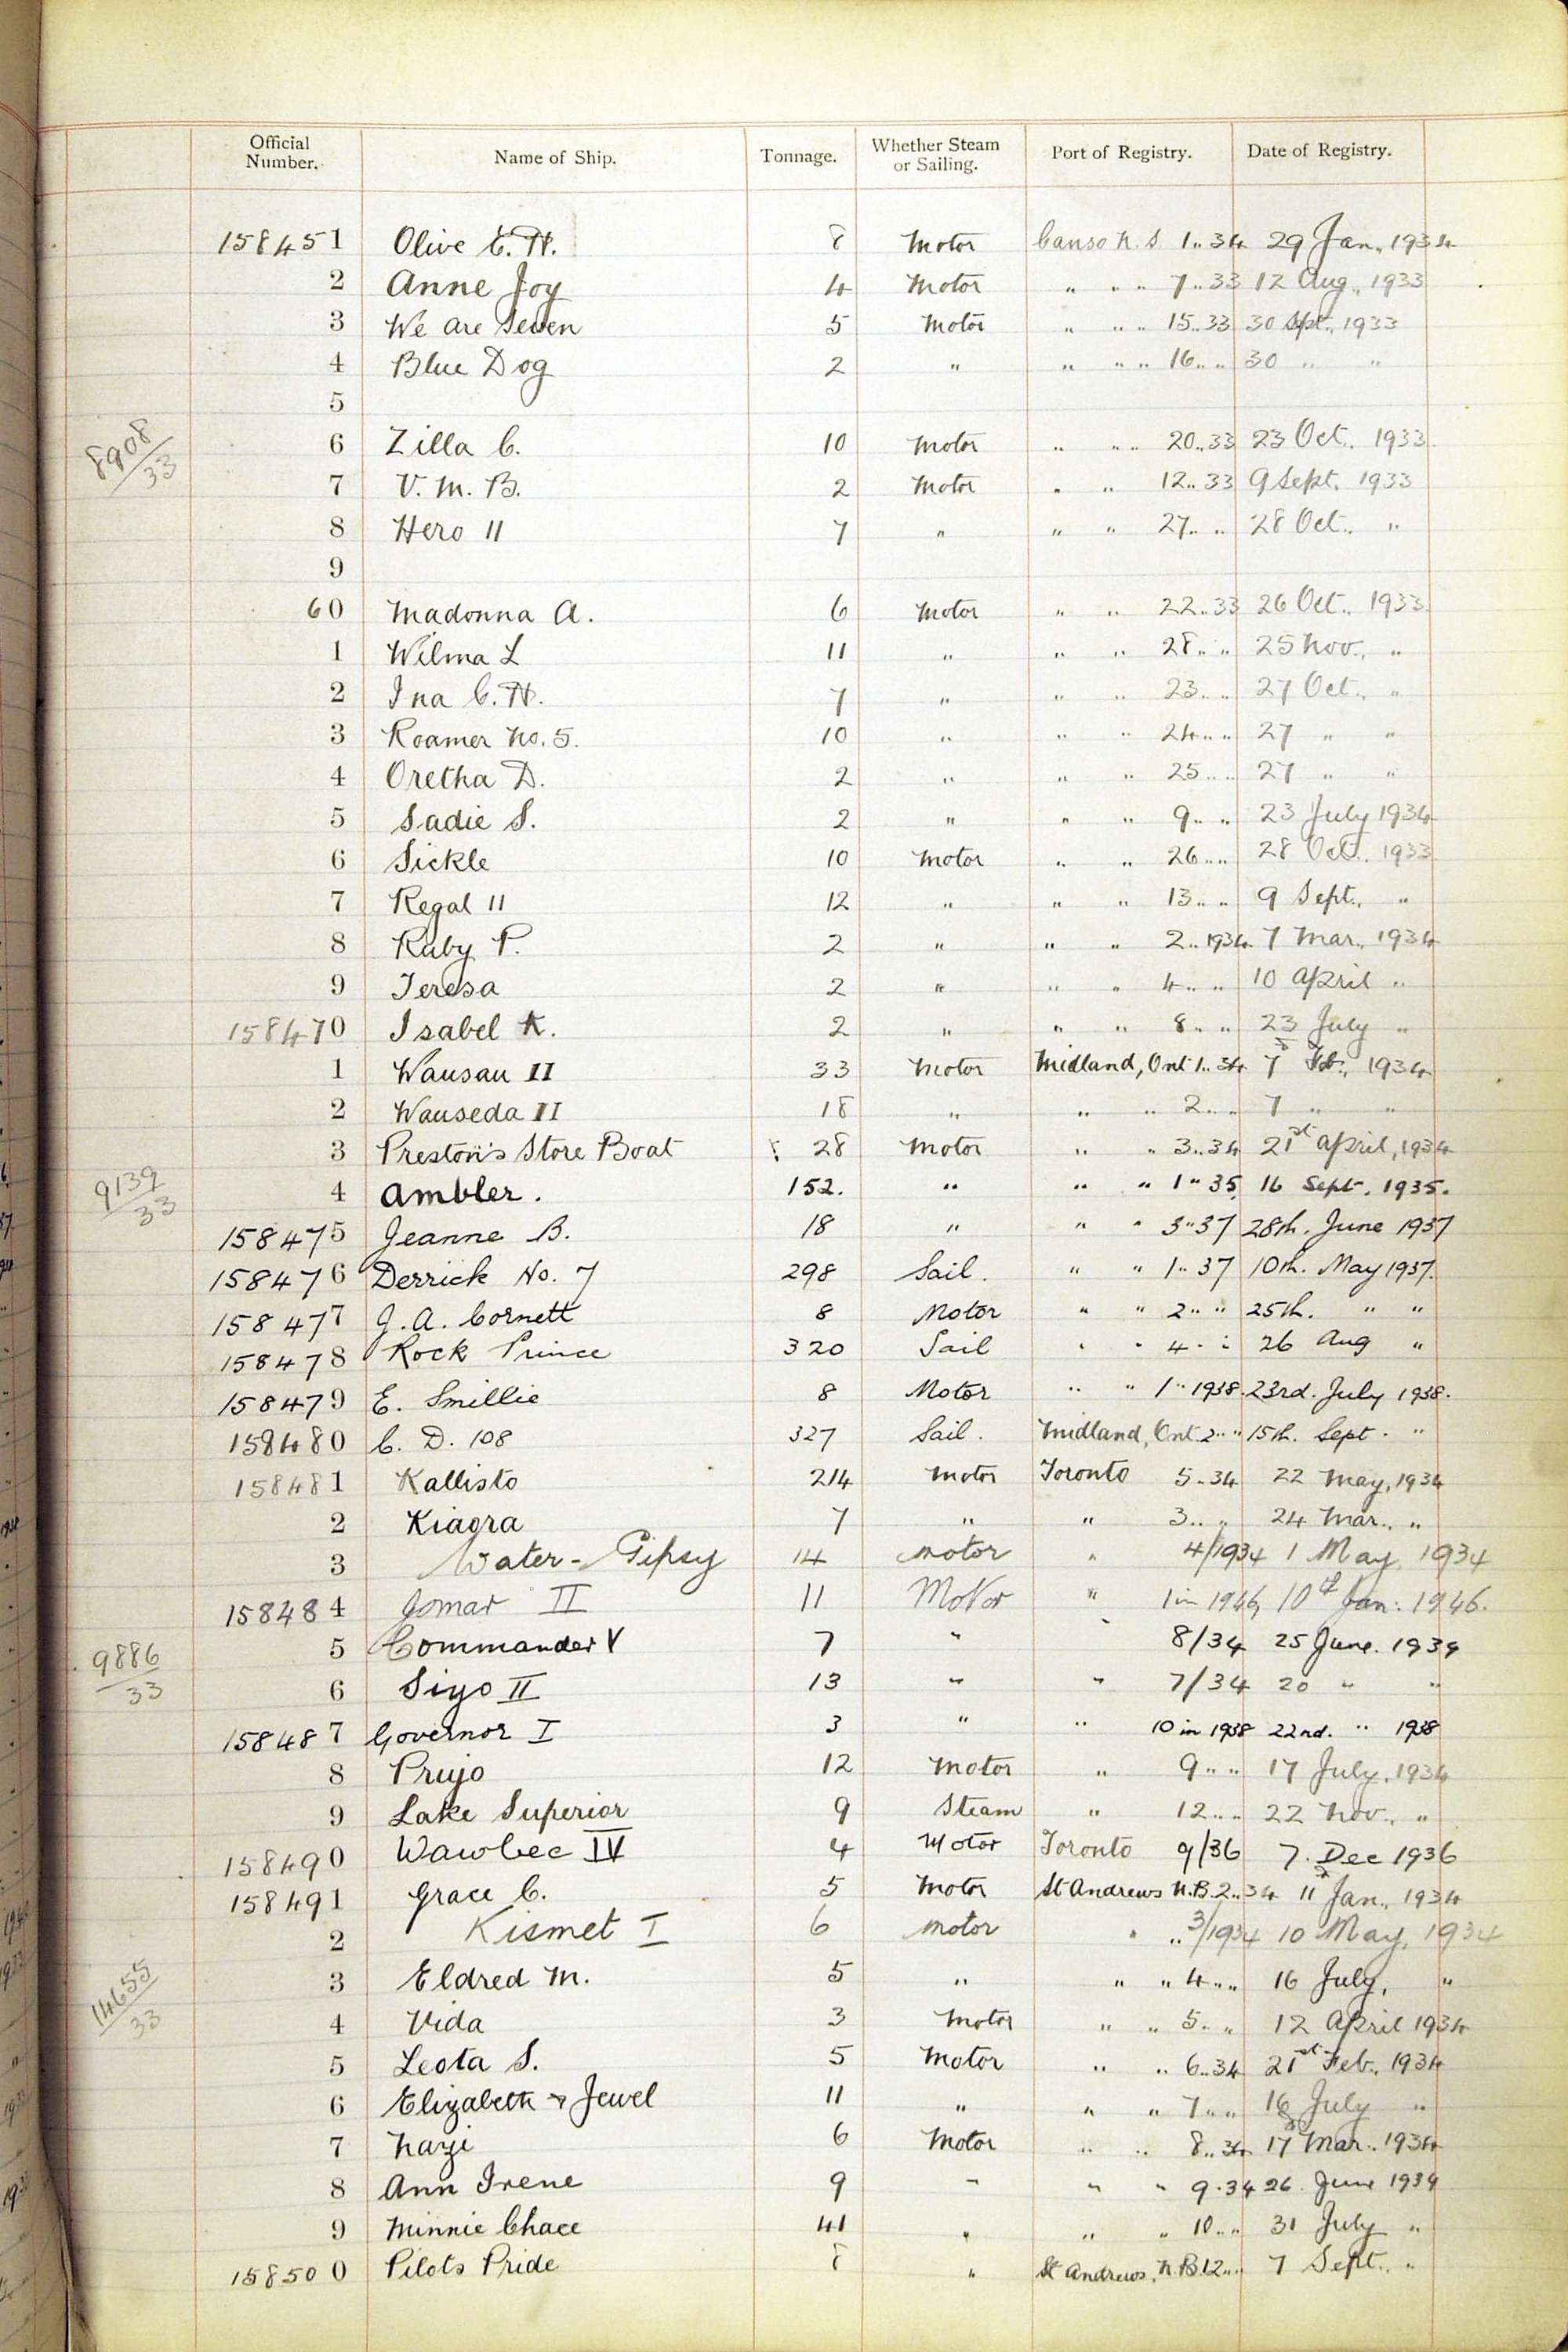 Official Number. Name of Ship. Tonnage. Whether Steam or Sailing. Port of Registry. Date of Registry.
158451 Olive C. H. 8 Motor Canso N.S 1..34 29 Jan., 1934
2 Anne Joy 4 Motor " " " 7..33 12 Aug., 1933
3 We are Seven 5 Motor " " " 15..33 30 Spt., 1933
4 Blue Dog 2 " " " " 16.. " 30 " "
5
8908/33
6 Zilla C. 10 Motor " " " 20..33 23 Oct., 1933
7 V. M. B. 2 Motor " " 12..33 9 Sept. 1933
8 Hero II 7 " " " 27.. " 28 Oct., "
9
60 Madonna A. 6 Motor " " 22..33 26 Oct., 1933
1 Wilma L 11 " " " 28.. " 25 Nov., "
2 Ina C. H. 7 " " " 23.. " 27 Oct., "
3 Roamer No. 5. 10 " " " 24.. " 27 " "
4 Oretha D. 2 " " " 25.. " 27 " "
5 Sadie S. 2 " " " 9.. " 23 July 1934
6 Sickle 10 Motor " " 26.. " 28 Oct., 1933
7 Regal II 12 " " " 13.. " 9 Sept., "
8 Ruby P. 2 " " " 2..1934 7 Mar., 1934
9 Teresa 2 " " " 4.. " 10 April "
158470 Isabel K. 2 " " " 8.. " 23 July "
1 Wausau II 33 Motor Midland, Ont 1..34 7 Feb., 1934
2 Wauseda II 18 " " " 2.. " 7 " "
3 Preston's Store Boat 28 Motor " " 3..34 21st April, 1934
9139/33
4 Ambler. 152. " " " 1"35 16 Sept. 1935.
158475 Jeanne B. 18 " " " 3"37 28th. June 1937
158476 Derrick No. 7 298 Sail. " " 1"37 10th. May 1937.
158477 J. A. Cornett 8 Motor " " 2" " 25th. " "
158478 Rock Prince 320 Sail " " 4 " " 26 Aug "
158479 E. Smillie 8 Motor " " 1"1938. 23rd. July 1938.
158480 C. D. 108 327 Sail. Midland, Ont. 2" " 15th. Sept. "
158481 Kallisto 214 Motor Toronto 5..34 22 May, 1934
2 Kiagra 7 " " 3.. " 24 Mar., "
3 Water-Gipsy 14 Motor " 4/1934 1 May, 1934
158484 Jomar II 11 Motor " 1 in 1946, 10th Jan: 1946.
5 Commander V 7 " " 8/34 25 June. 1934
9886/33
6 Siyo II 13 " " 7/34 20 " "
158487 Governor I 3 " " 10 in 1938 22nd. " 1938
8 Prujo 12 Motor " 9.. " 17 July, 1934
9 Lake Superior 9 Steam " 12.. " 22 Nov., "
158490 Wawbec IV 4 Motor Toronto 9/36 7. Dec 1936
158491 Grace C. 5 Motor St Andrews N.B. 2..34 11 Jan., 1934
2 Kismet I 6 Motor " " 3/1934 10 May, 1934
3 Eldred M. 5 " " " 4.. " 16 July, "
14655/33
4 Vida 3 Motor " " 5.. " 12 April 1934
5 Leota S. 5 Motor " " 6..34 21st Feb., 1934
6 Elizabeth & Jewel 11 " " " 7.. " 16 July "
7 Nazi 6 Motor " " 8..34 17 Mar., 1934
8 Ann Irene 9 " " " 9.34 26. June 1934
9 Minnie Chace 41 " " " 10.. " 31 July "
158500 Pilots Pride 8 " St Andrews, N.B. 12.. " 7 Sept., "